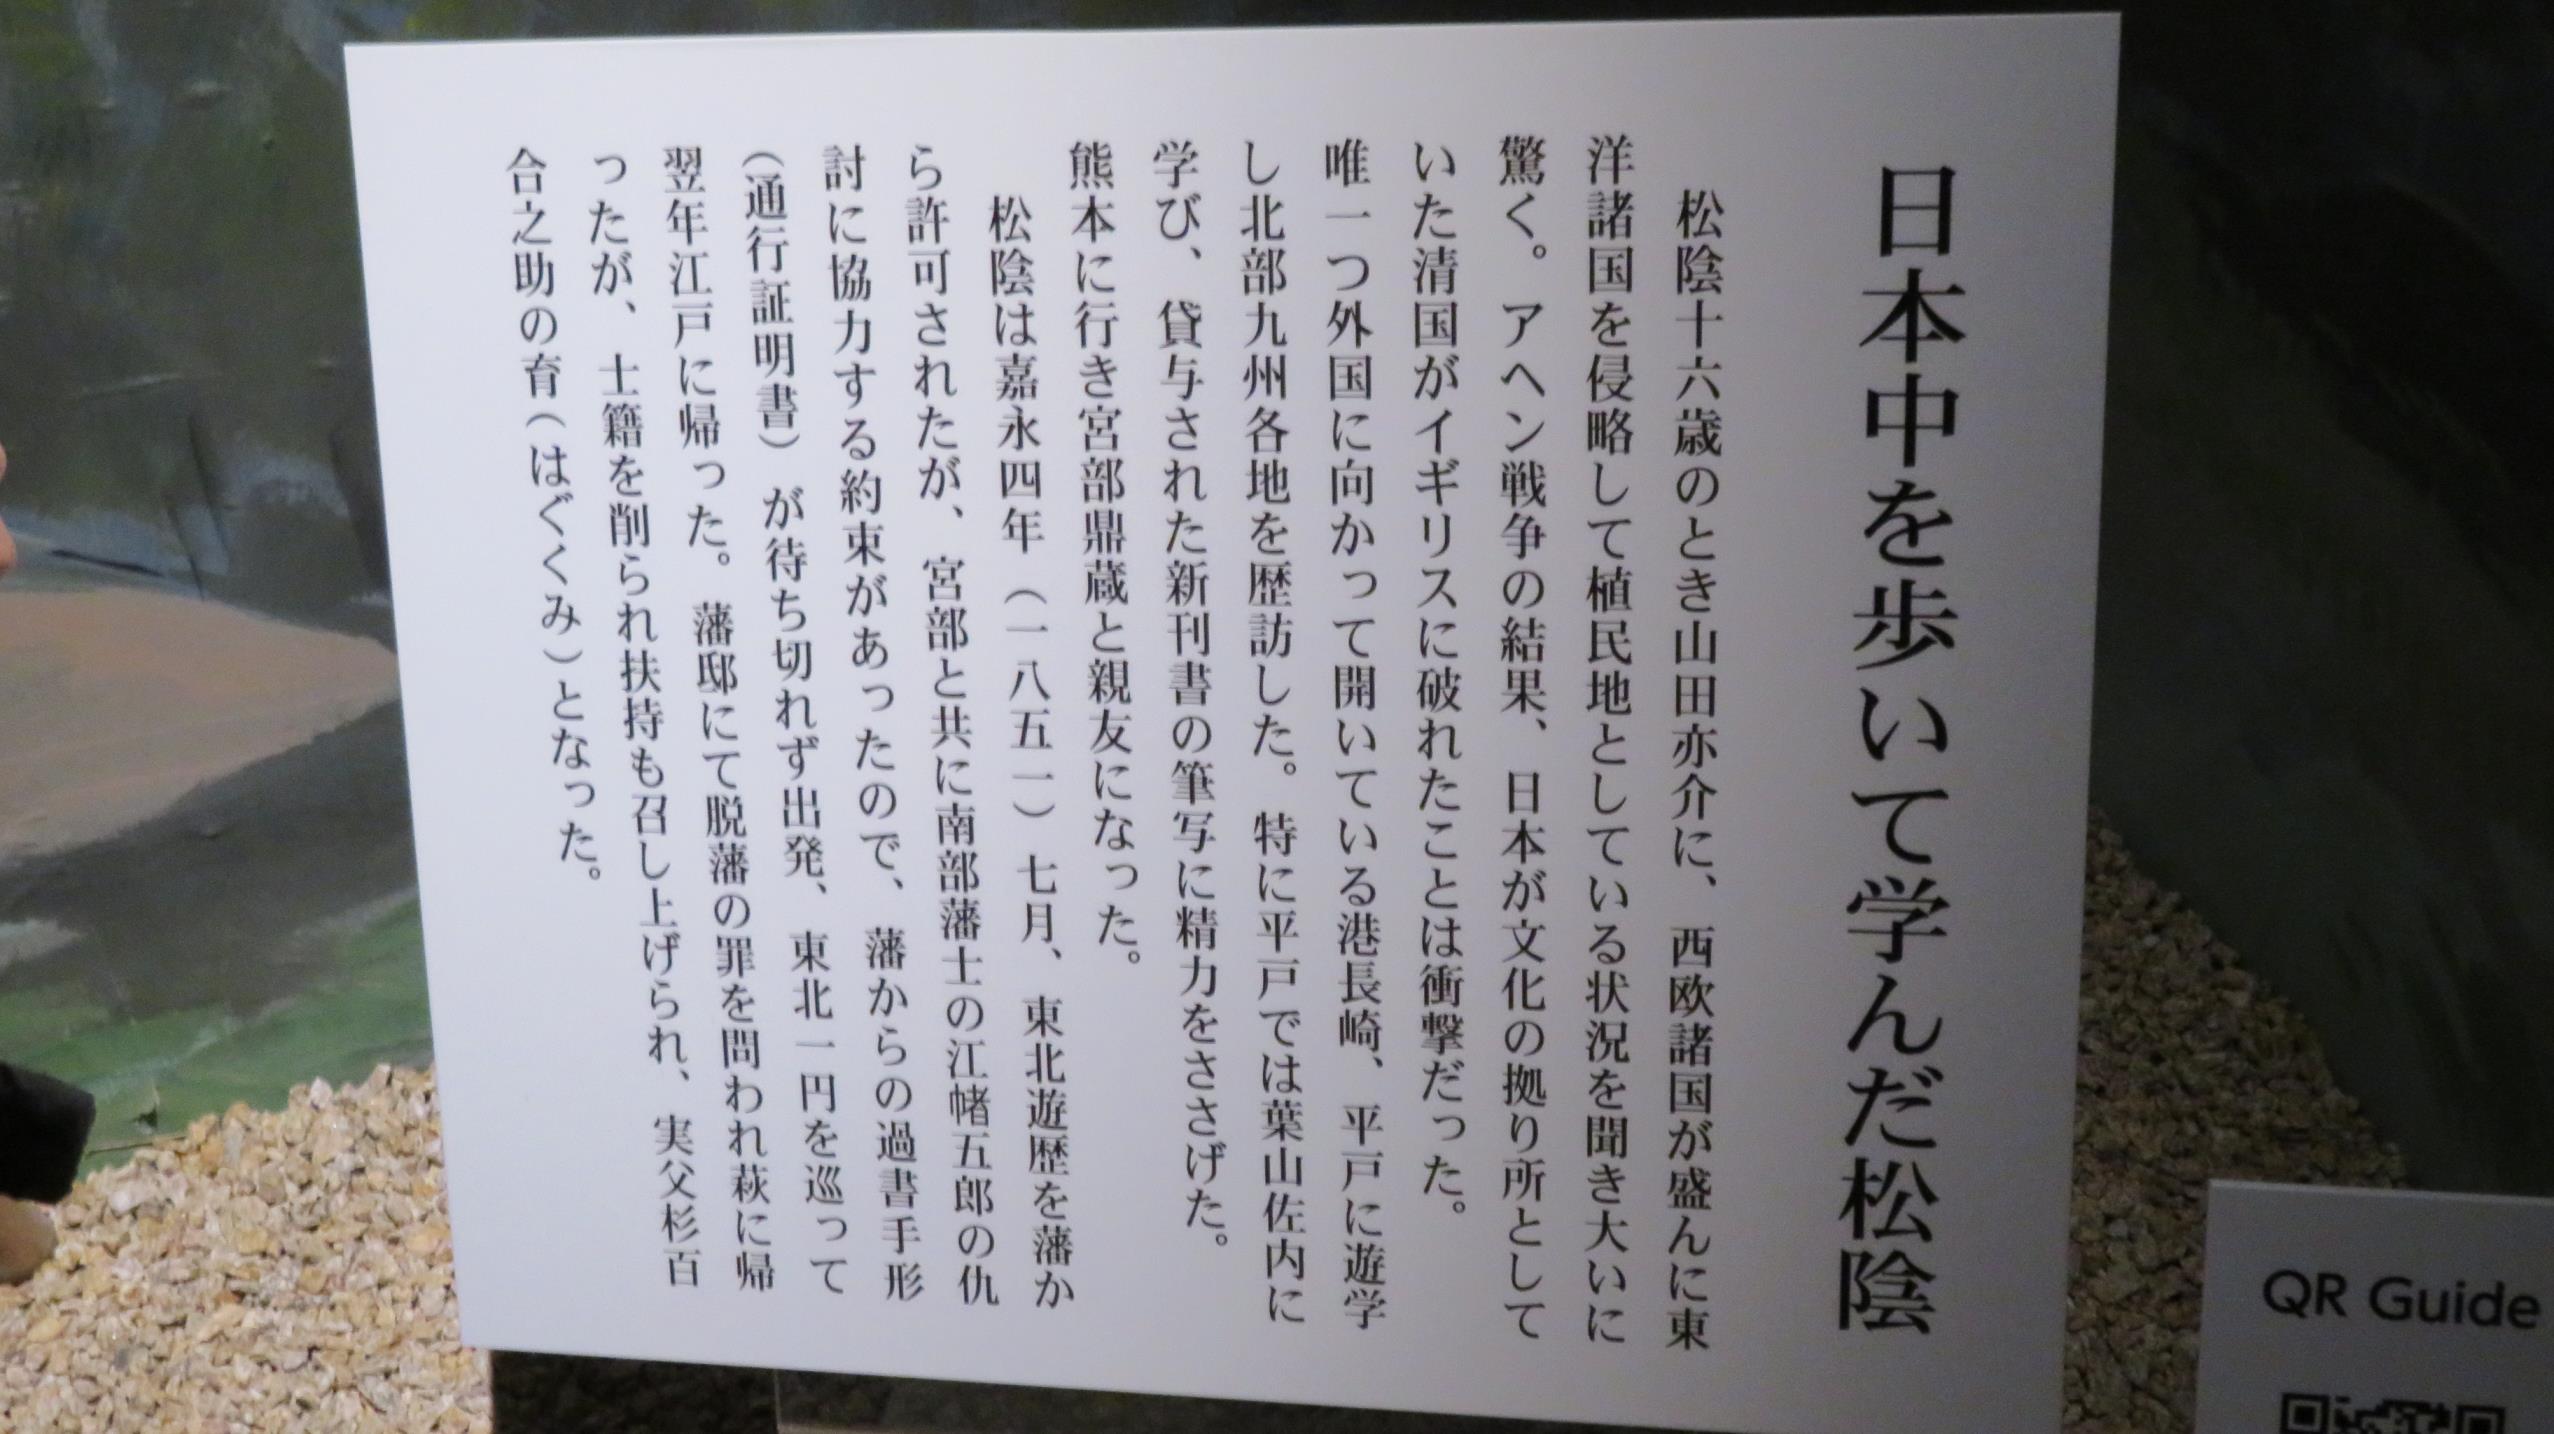 日本中を歩いて学んだ松陰
　松陰十六歳のとき山田亦介に、西欧諸国が盛んに東
洋諸国を侵略して植民地としている状況を聞き大いに
驚く。アヘン戦争の結果、日本が文化の拠り所として
いた清国がイギリスに破れたことは衝撃だった。
唯一つ外国に向かって開いている港長崎、平戸に遊学
し北部九州各地を歴訪した。特に平戸では葉山佐内に
学び、貸与された新刊書の筆写に精力をささげた。
熊本に行き宮部鼎蔵と親友になった。
　松陰は嘉永四年（一八五一）七月、東北遊歴を藩か
ら許可されたが、宮部と共に南部藩士の江幡五郎の仇
討に協力する約束があったので、藩からの過書手形
（通行証明書）が待ち切れず出発、東北一円を巡って
翌年江戸に帰った。藩邸にて脱藩の罪を問われ萩に帰
ったが、士籍を削られ扶持も召し上げられ、実父杉百
合之助の育（はぐくみ）となった。
QR Guide